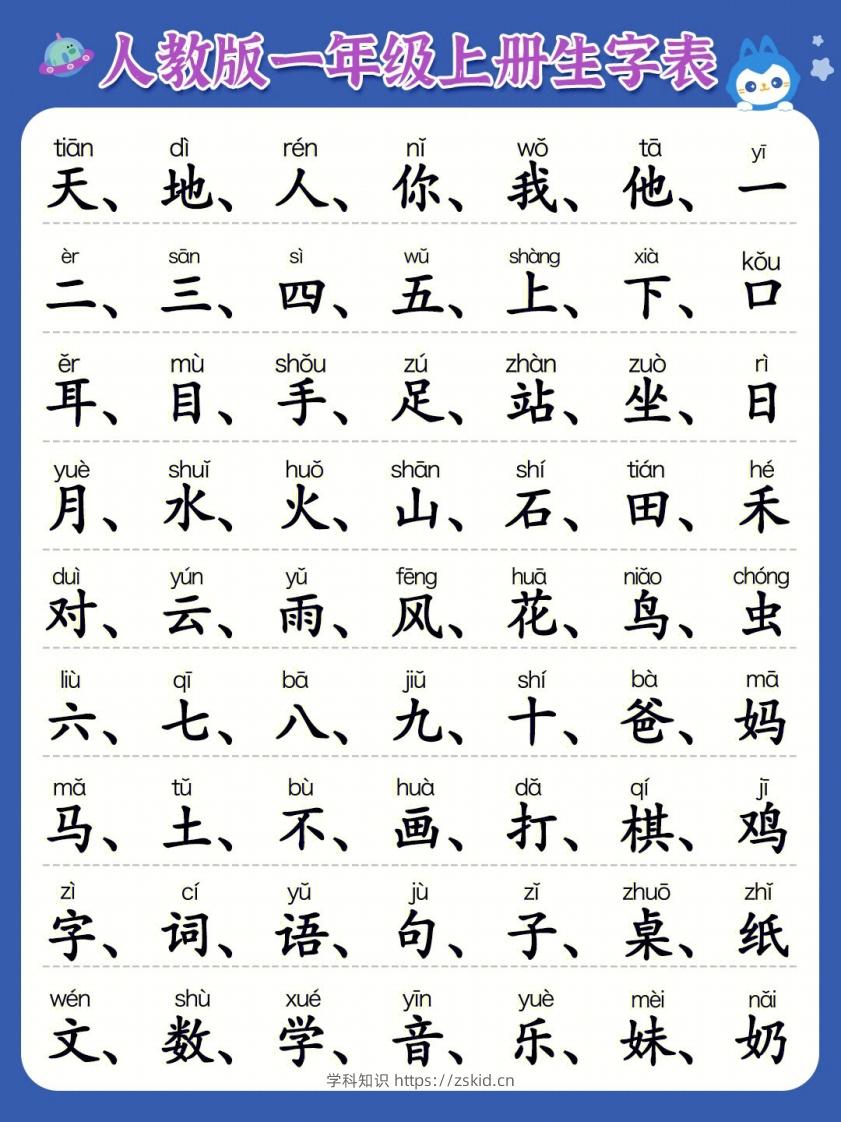 人教版一年级上册生字表
tiān dì rén nǐ wǒ tā yī
天、地、人、你、我、他、一
èr sān sì wǔ shàng xià kǒu
二、三、四、五、上、下、口
ěr mù shǒu zú zhàn zuò rì
耳、目、手、足、站、坐、日
yuè shuǐ huǒ shān shí tián hé
月、水、火、山、石、田、禾
duì yún yǔ fēng huā niǎo chóng
对、云、雨、风、花、鸟、虫
liù qī bā jiǔ shí bà mā
六、七、八、九、十、爸、妈
mǎ tǔ bù huà dǎ qí jī
马、土、不、画、打、棋、鸡
zì cí yǔ jù zǐ zhuō zhǐ
字、词、语、句、子、桌、纸
wén shù xué yīn yuè mèi nǎi
文、数、学、音、乐、妹、奶
学科知识 https://zskid.cn